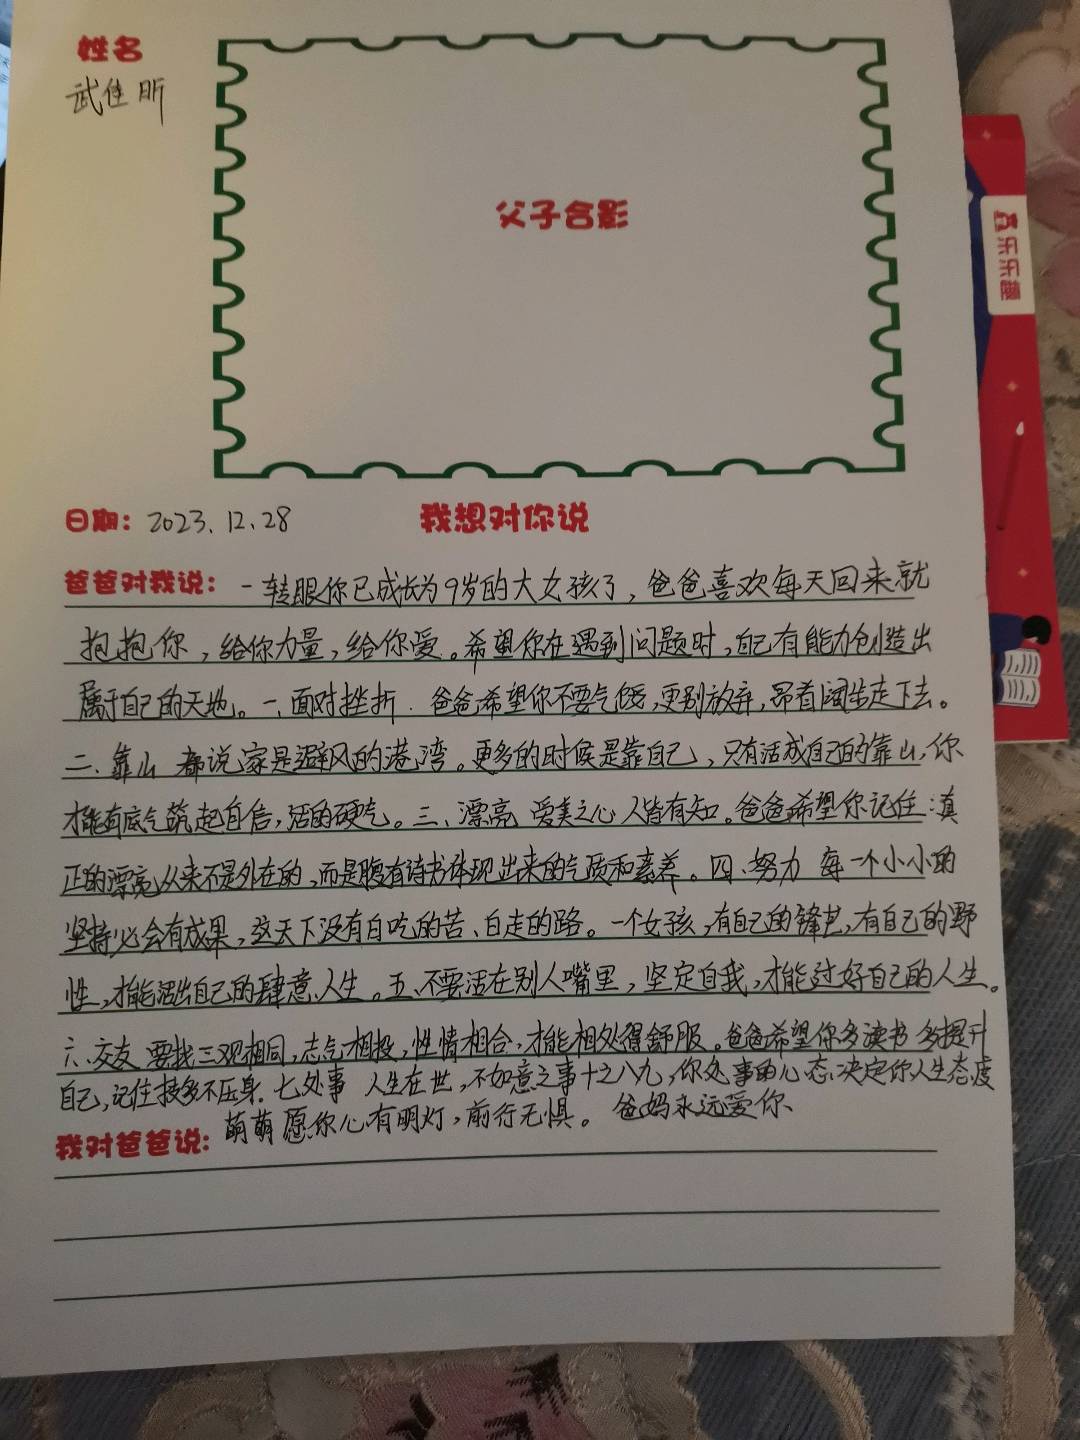 姓名
武佳昕
父子合影
乐乐趣
日期：2023.12.28
我想对你说
爸爸对我说：一转眼你已成长为9岁的大女孩了，爸爸喜欢每天回来就
抱抱你，给你力量，给你爱。希望你在遇到问题时，自己有能力创造出
属于自己的天地。一、面对挫折．爸爸希望你不要气馁，更别放弃，昂首阔步走下去。
二、靠山 都说家是避风的港湾。更多的时候是靠自己，只有活成自己的靠山，你
才能有底气筑起自信，活的硬气。三、漂亮 爱美之心人皆有知。爸爸希望你记住：真
正的漂亮从来不是外在的，而是腹有诗书体现出来的气质和素养。四、努力 每一个小小的
坚持必会有成果，这天下没有白吃的苦、白走的路。一个女孩，有自己的锋芒，有自己的野
性，才能活出自己的肆意人生。五、不要活在别人嘴里，坚定自我，才能过好自己的人生。
六、交友 要找三观相同，志气相投，性情相合，才能相处得舒服。爸爸希望你多读书 多提升
自己，记住技多不压身．七处事 人生在世，不如意之事十之八九，你处事的心态决定你人生态度
我对爸爸说：萌萌愿你心有明灯，前行无惧。 爸妈永远爱你